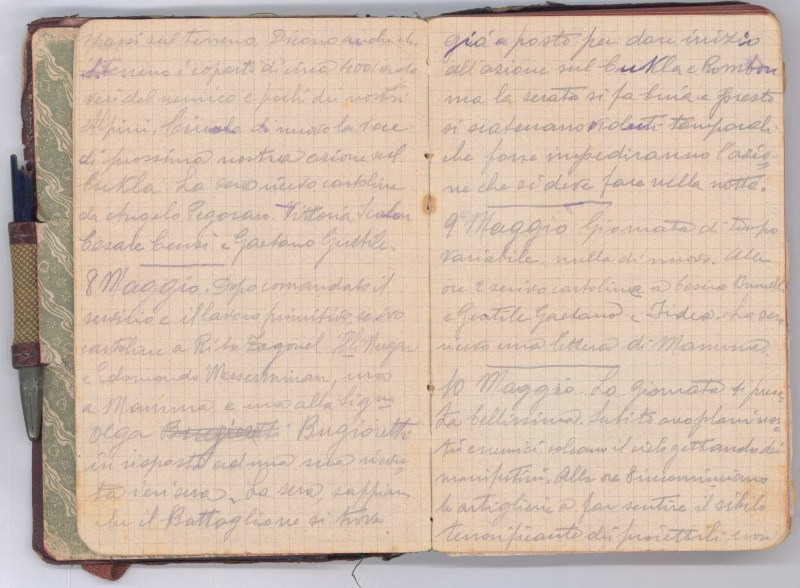 spassi sul terreno. Dicono anche che
il terreno è coperto di circa 400 cada
veri del nemico e pochi dei nostri
Alpini. Circola di nuovo la voce
di prossima nostra azione sul
Cukla. La sera ricevo cartoline
da Angelo Pegoraro Vittoria
Cesare Censi e Gaetano Gentile.
8 Maggio. Dopo comandato il
servizio e il lavoro primitivo, scrivo
cartoline a Rita Zagonel
e Edomondo Wasserminan, una
a Mamma e una alla Sigra
Olga Bugioretti
in risposta ad una sua ricevu
ta ieri sera. La sera, sappiam
che il Battaglione si trova
già a posto per dare inizio
all'azione sul Cukla e Rombon
ma la serata si fa buia e presto
si scatenano violenti temporali
che forse impediranno l'azio
ne che si deve fare nella notte.
9 Maggio Giornata di tempo
variabile, nulla di nuovo. Alle
ore 2 scrivo cartoline a Cesira
e Gentile Gaetano e Fidea. La sera
ricevo una lettera di Mamma.
10 Maggio. La giornata si presen
ta bellissima. Subito aeroplani nos
tri e nemici solcano il cielo gettando dei
manifestini. Alle ore 8 incominciano
le artiglierie a far sentire il sibilo
terrorificante dei proiettili